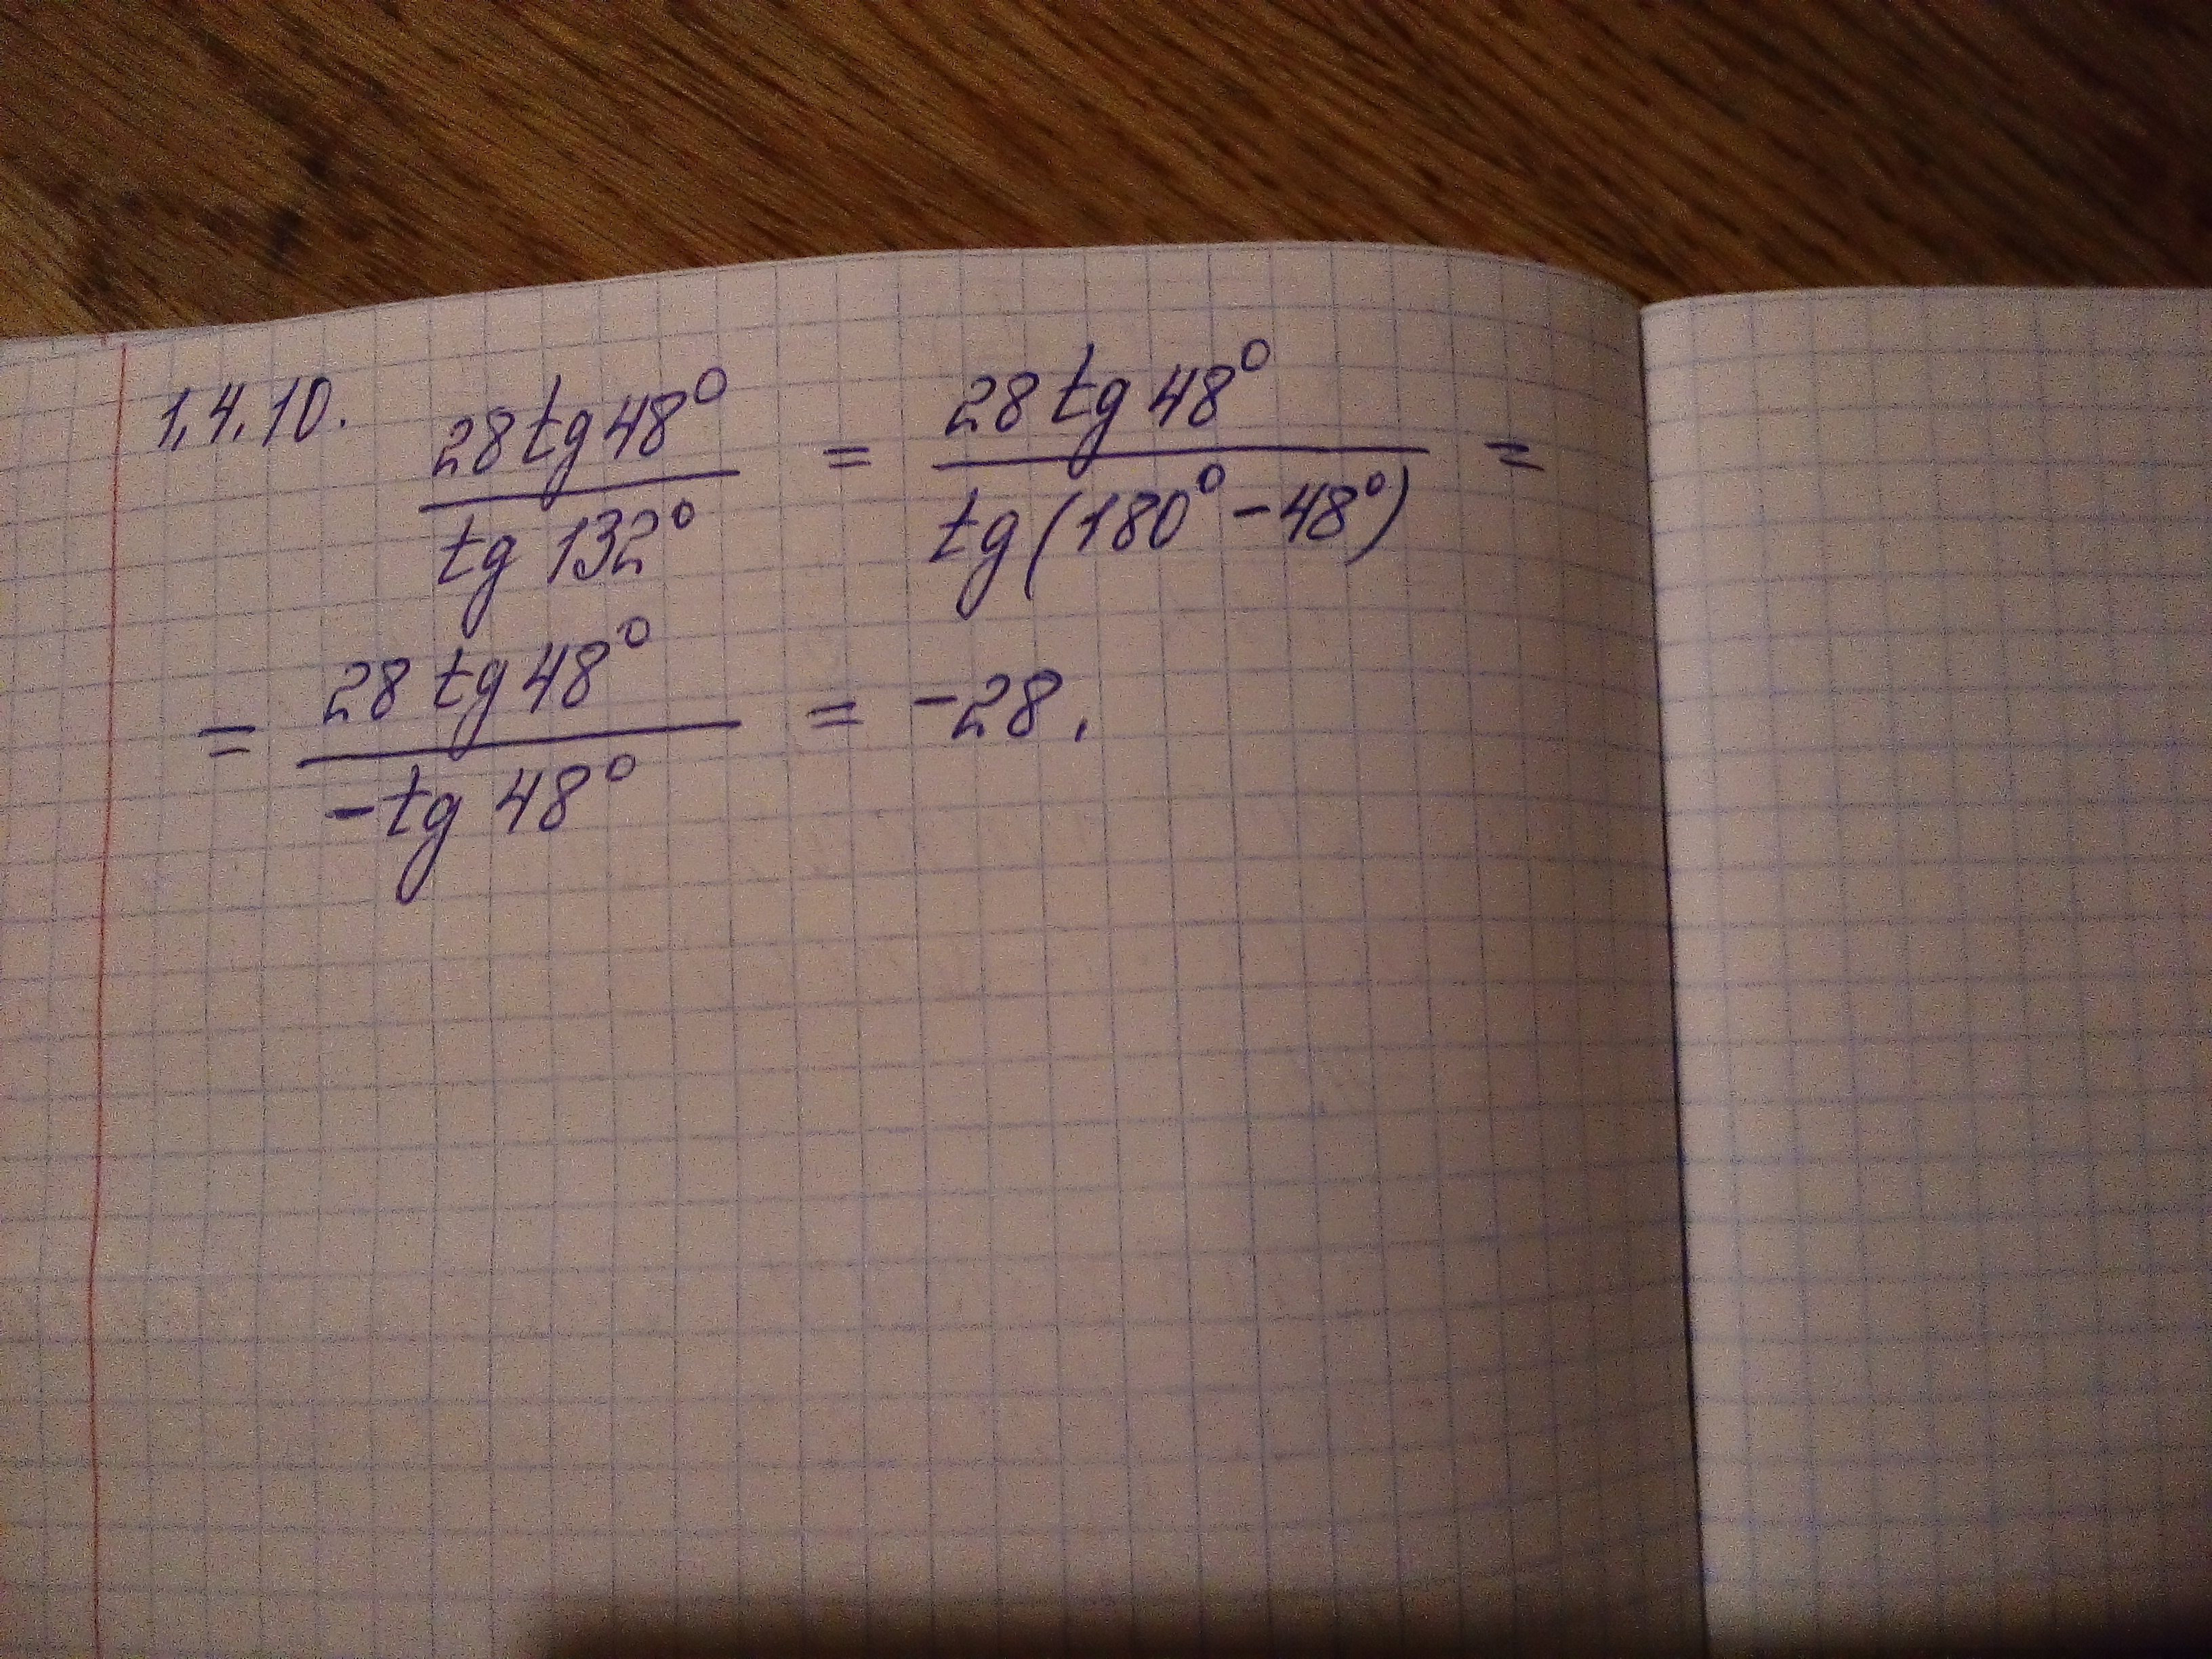 1.4.10. 28 tg 48° / tg 132° = 28 tg 48° / tg (180° - 48°) =
= 28 tg 48° / -tg 48° = -28.